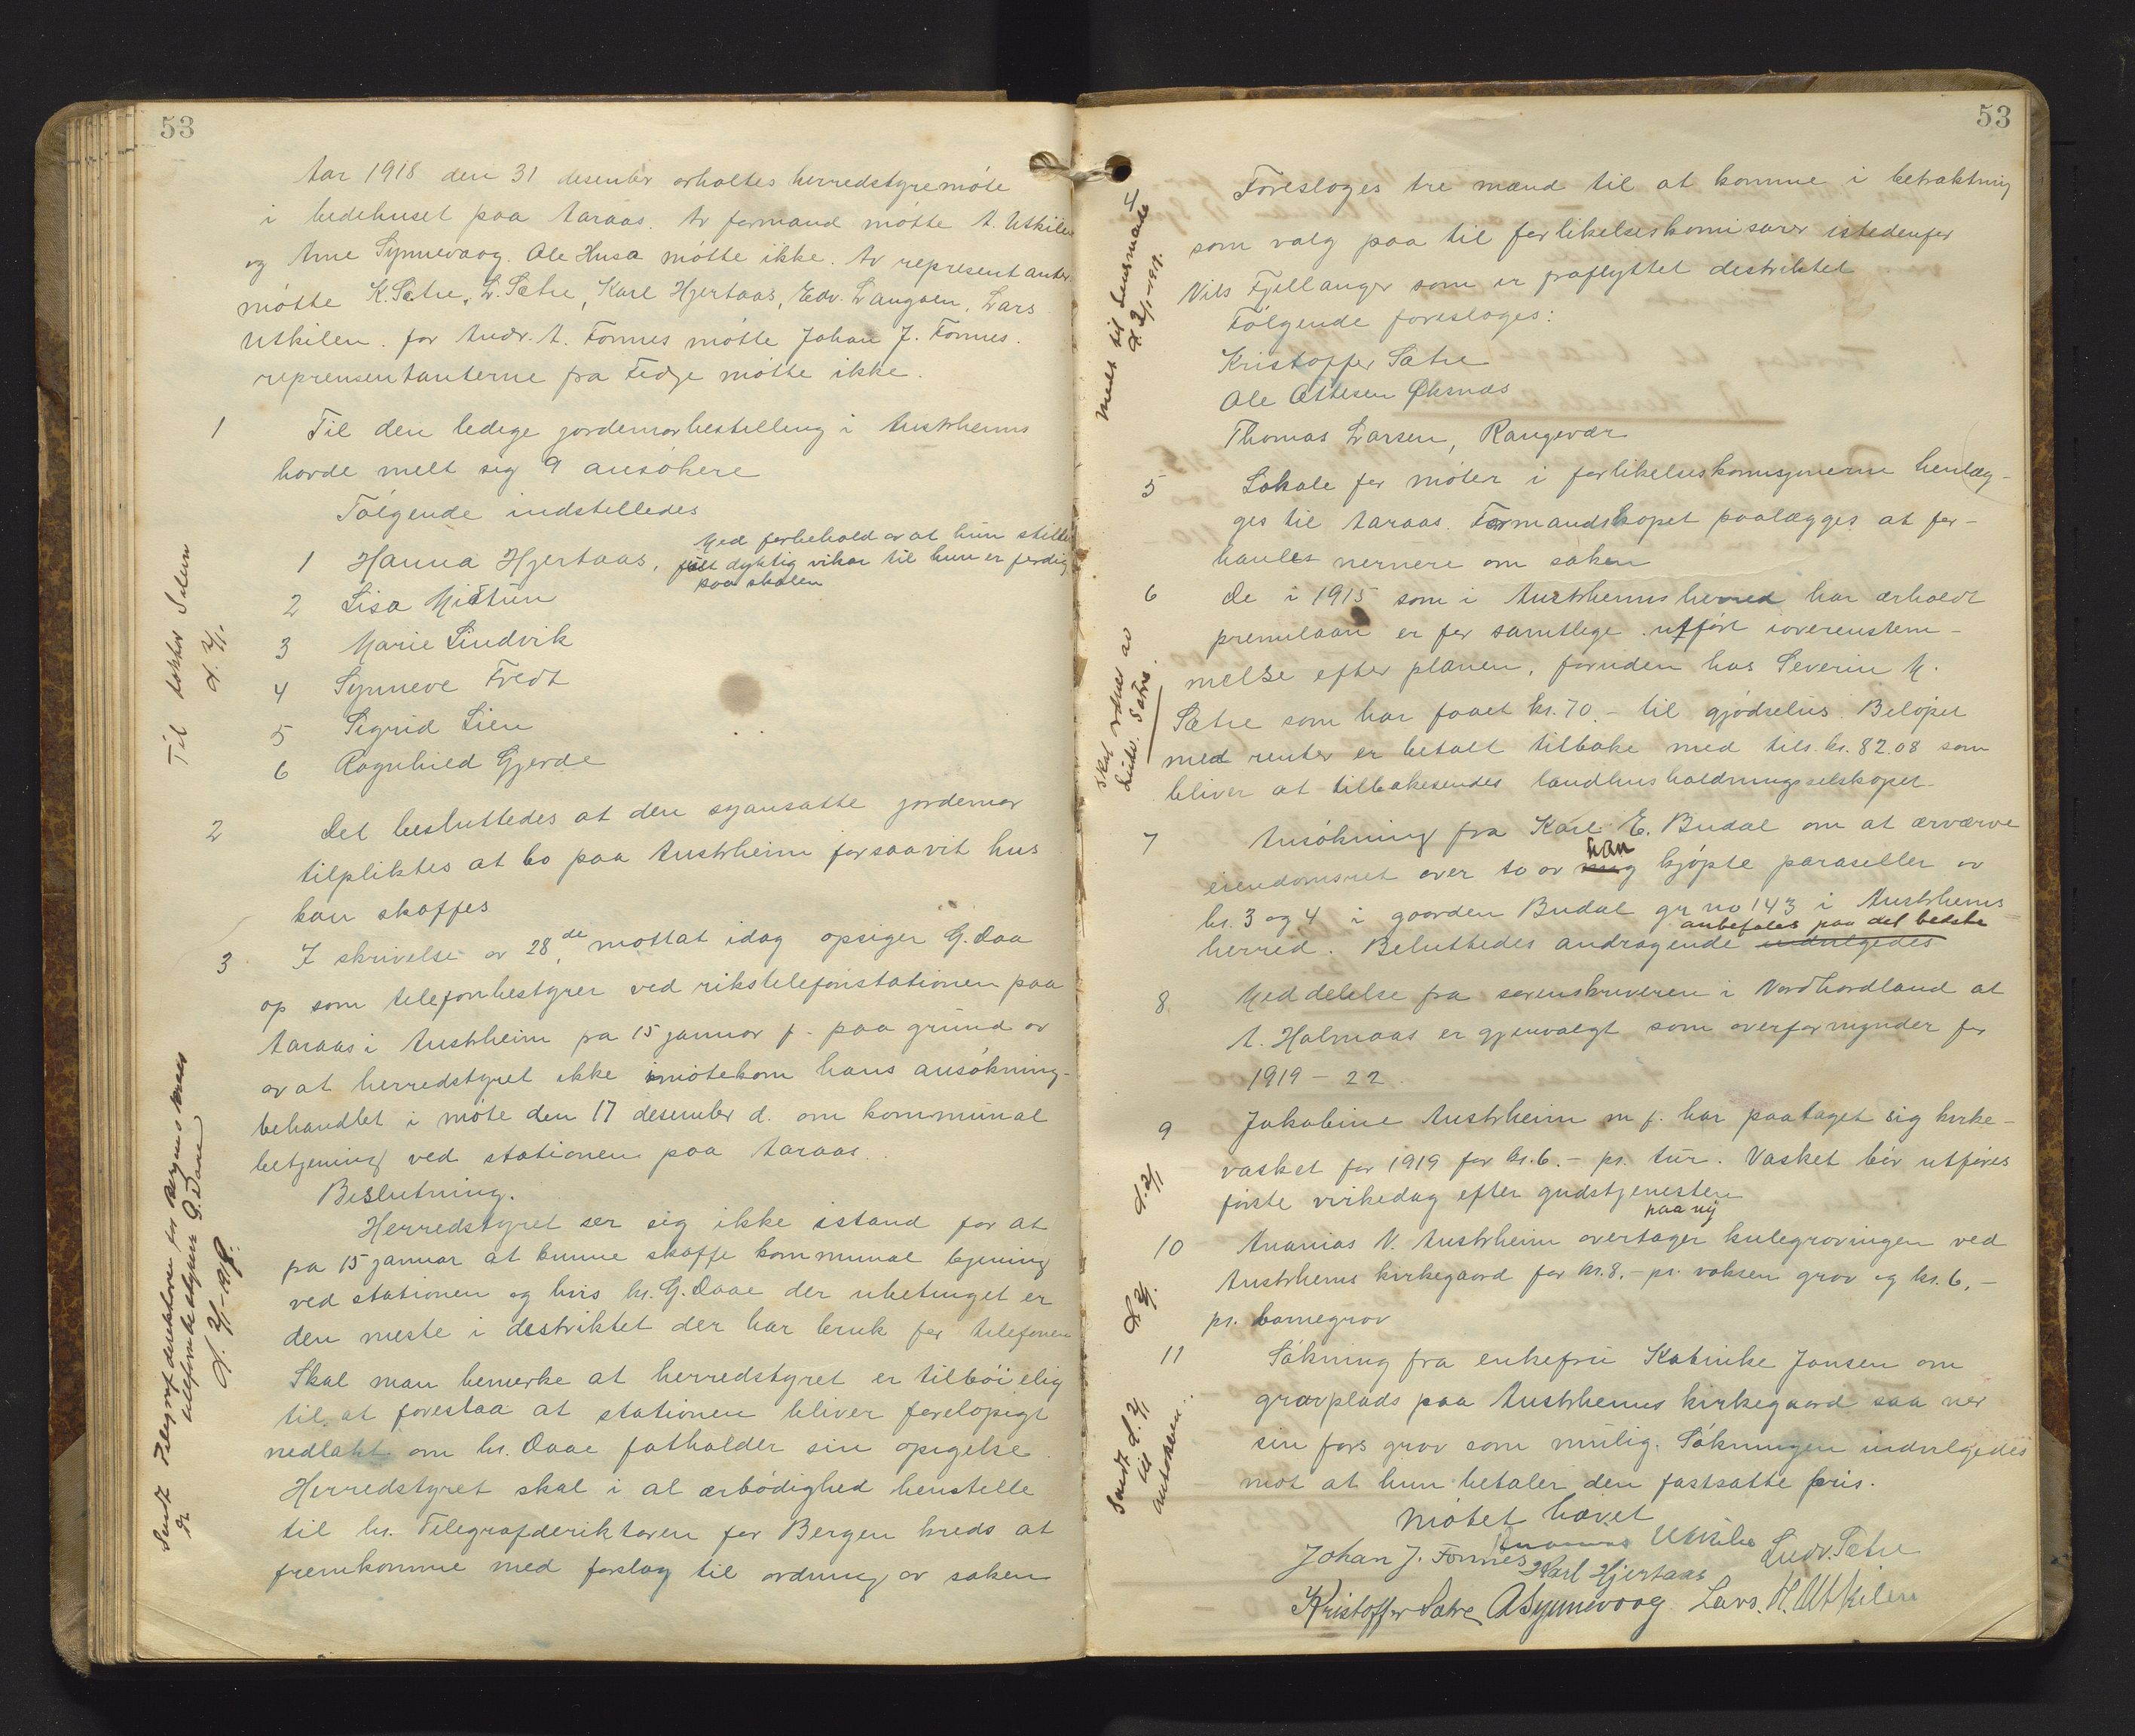 53
Aar 1918 den 31 desember avholtes herredstyremöte
i bedehuset paa Aaraas. Av formænd mötte A. Utkilen
og Arne Synnevaag. Ole Husa mötte ikke. Av representanter
mötte K. Sætre, L. Sætre, Karl Hjertaas, Edv. Langöen, Lars
Utkilen. for Andr. A. Fonnes mötte Johan J. Fonnes.
reprensentanterne fra Fedje mötte ikke.
1 Til den ledige jordemorbestilling i Austrheims
havde melt sig 9 ansökere
Fölgende indstilledes
Med forbehold av at hun stiller
1 Hanna Hjertaas, fult dyktig vikar til hun er ferdig
paa skolen
2 Lisa Mictun
3 Marie Lindvik
4 Synneve Tvedt
5 Sigrid Lien
6 Ragnhild Gjerde
Til doktor
d. 2/1.
2 Det besluttedes at den nyansatte jordemor
tilpliktes at bo paa Austrheim forsaavit hus
kan skaffes
3 I skrivelse av 28de, mottat idag opsiger G. Daa
op som telefonbestyrer ved rikstelefonstationen paa
Aaraas i Austrheim fra 15 januar f. paa grund av
av at herredstyret ikke imötekom hans ansökning-
behandlet i möte den 17 desember d. om kommunal
betjening ved stationen paa Aaraas.
Beslutning.
Herredstyret ser sig ikke istand for at
fra 15 januar at kunne skaffe kommunal tjening
ved stationen og hvis hr. G. Daae der ubetinget er
den meste i destriktet der har bruk for telefonen
Skal man bemerke at herredstyret er tilböielig
til at forestaa at stationen bliver forelöpigt
nedlakt om hr. Daae fatholder sin opsigelse.
Herredstyret skal i al ærbödighed henstelle
til hr. Telegrafderiktören for Bergen kreds at
fremkomme med forslag til ordning av saken
Sendt Telegrafdirektören for Bergens kreds
og telefonbestyrer G. Daae
d. 2/1-1919.
53
4 Foresloges tre mænd til at komme i betraktning
som valg paa til forlikelseskomisærer istedenfor
Nils Fjellanger som er fraflyttet destriktet
Fölgende foresloges:
Kristoffer Sætre
Ole Ottesen Öksnæs
Thomas Larsen, Rangevær
Melt til Lensmand
d. 2/1-1919.
5 Lokale for möter i forlikelseskomisjonerne henlæg-
ges til Aaraas. Formandskapet paalægges at for-
hanles nermere om saken
6 De i 1915 som i Austrheims herred har ærholdt
premilaan er for samtlege utfört ioverenstem-
melse efter planen, foruden hos Severin M.
Sætre som har faaet kr. 70.- til gjödselus. Belöpet
med renter er betalt tilbake med tils. kr. 82.08 som
bliver at tilbakesendes landhusholdningsselskapet
Skal ordnes av
Ludv. Sætre.
7 Ansökning fra Karl E. Budal om at ærværve
han
eiendomsret over to av mig kjöpte paraseller av
br. 3 og 4 i gaarden Budal gr no 143 i Austrheims
anbefales paa det bedste
herred. Beluttedes andragende indvilgedes
8 Meddelelse fra sorenskriveren i Nordhordland at
A. Halmaas er gjenvalgt som overformynder for
1919 – 22.
9 Jakobine Austrheim m f. har paataget sig kirke-
vasket for 1919 for kr. 6.- pr. tur. Vasket bör utföres
förste virkedag efter gudstjenesten
d. 2/1
paa ny
10 Ananias N. Austrheim overtager kulegravingen ved
Austrheims kirkegaard for kr. 8.- pr. voksen grav og kr. 6.-
pr. barnegrav
d. 2/1.
11 Sökning fra enkefru Katinke Jansen om
gravplads paa Austrheims kirkegaard saa nær
sin fars grav som mulig. Sökningen indvilgedes
mot at hun betaler den fastsatte pris.
Sendt d. 2/1
til
Mötet hævet
Johan J. Fonnes Ananias Utkilen Ludv. Sætre
Karl Hjertaas
Kristoffer Sætre A Synnevaag Lars. H. Utkilen